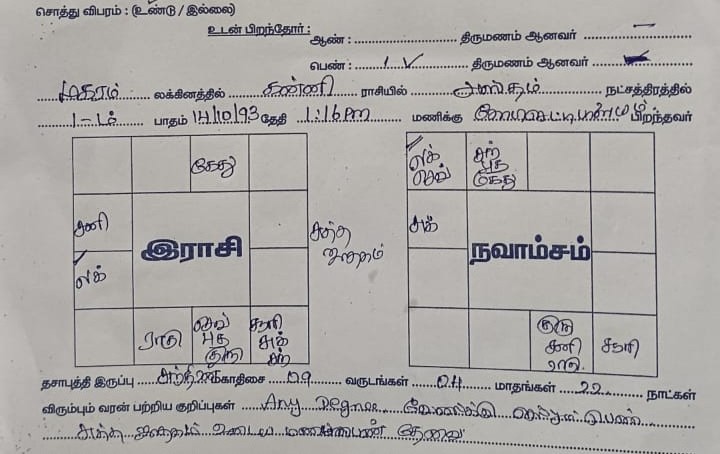 சொத்து விபரம் : (உண்டு / இல்லை)
உடன் பிறந்தோர் : ஆண் : திருமணம் ஆனவர் –
பெண் : 1 ✓ திருமணம் ஆனவர்
மகரம் லக்கினத்தில் கன்னி ராசியில் அஸ்தம் நட்சத்திரத்தில்
1-ம் பாதம் 14/10/93 தேதி 1:16 PM மணிக்கு பிறந்தவர்
கேது
சனி
இராசி
லக்
ராகு
செவ் புத குரு
சூரி சுக் சந்
சுத்த ஜாதகம்
லக் செவ்
சந் புத கேது
சுக்
நவாம்சம்
குரு சனி ராகு
சூரி
தசாபுத்தி இருப்பு சந்திரன் மகாதிசை 09 வருடங்கள் 04 மாதங்கள் 22 நாட்கள்
விரும்பும் வரன் பற்றிய குறிப்புகள் Any Degree பெண்
சுத்த ஜாதகம் உடைய மணப்பெண் தேவை